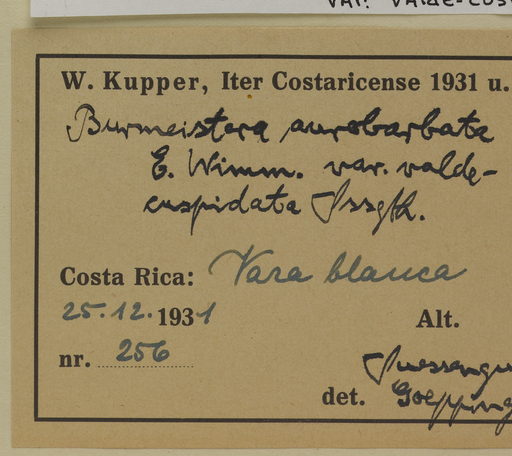 var. valde-cus
W. Kupper, Iter Costaricense 1931 u.
Burmeistera aurobarbata
E. Wimm. var. valde-
cuspidata Sssgth.
Costa Rica: Vara blanca
25.12.1931 Alt.
nr. 256
Suessengu
det. Goepping